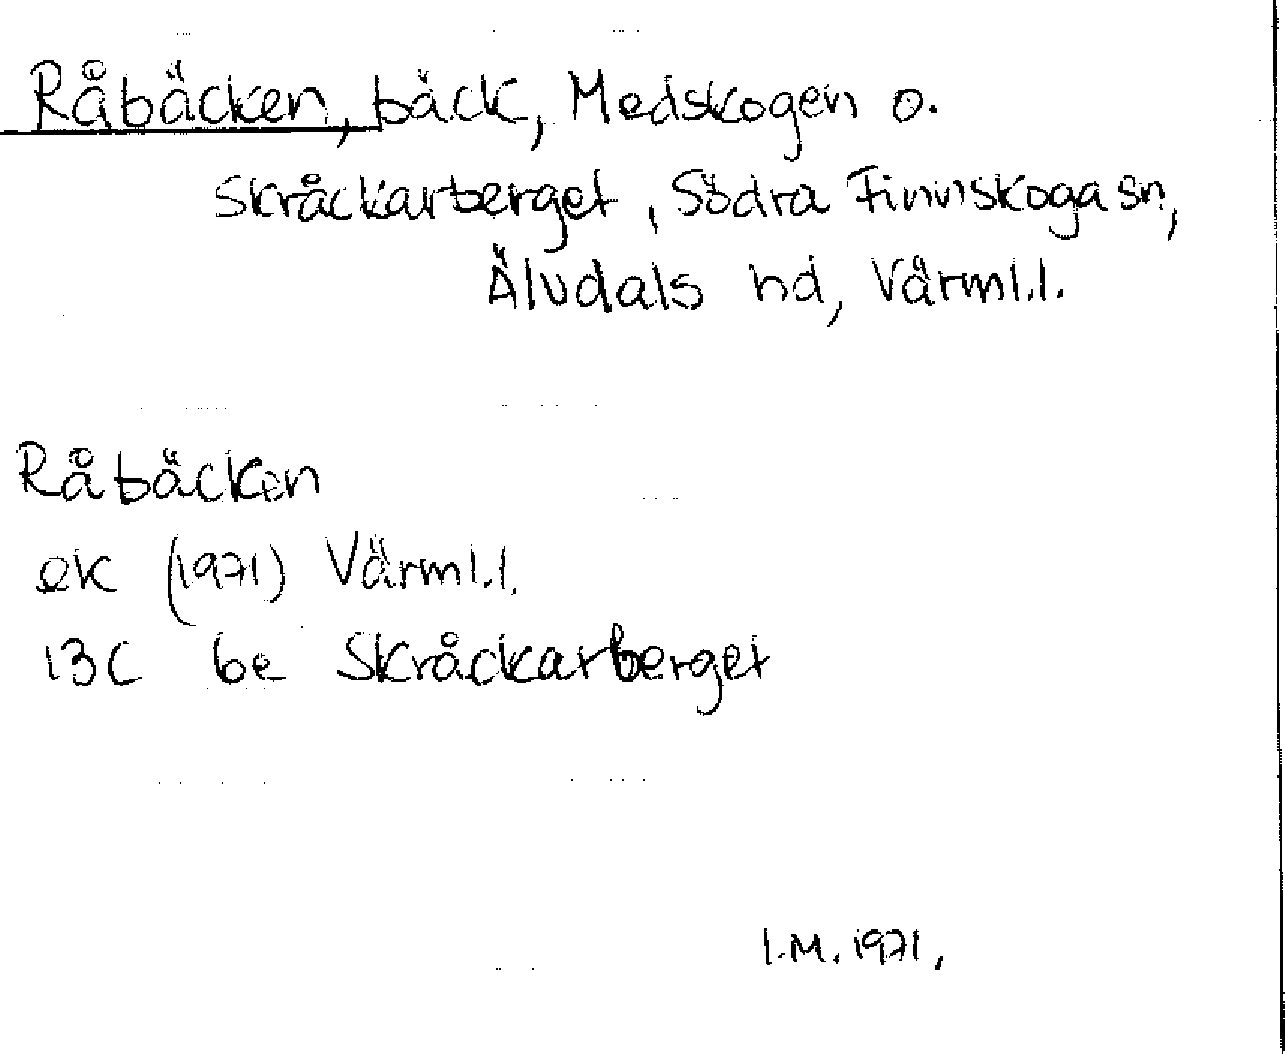 Råbäcken, bäck, Medskogen o.
Skråckarberget, Södra Finnskoga sn,
Älvdals hd, Värml.l.
Råbäcken
ek (1971) Värml.l.
13C 6e Skråckarberget
I.M. 1971.